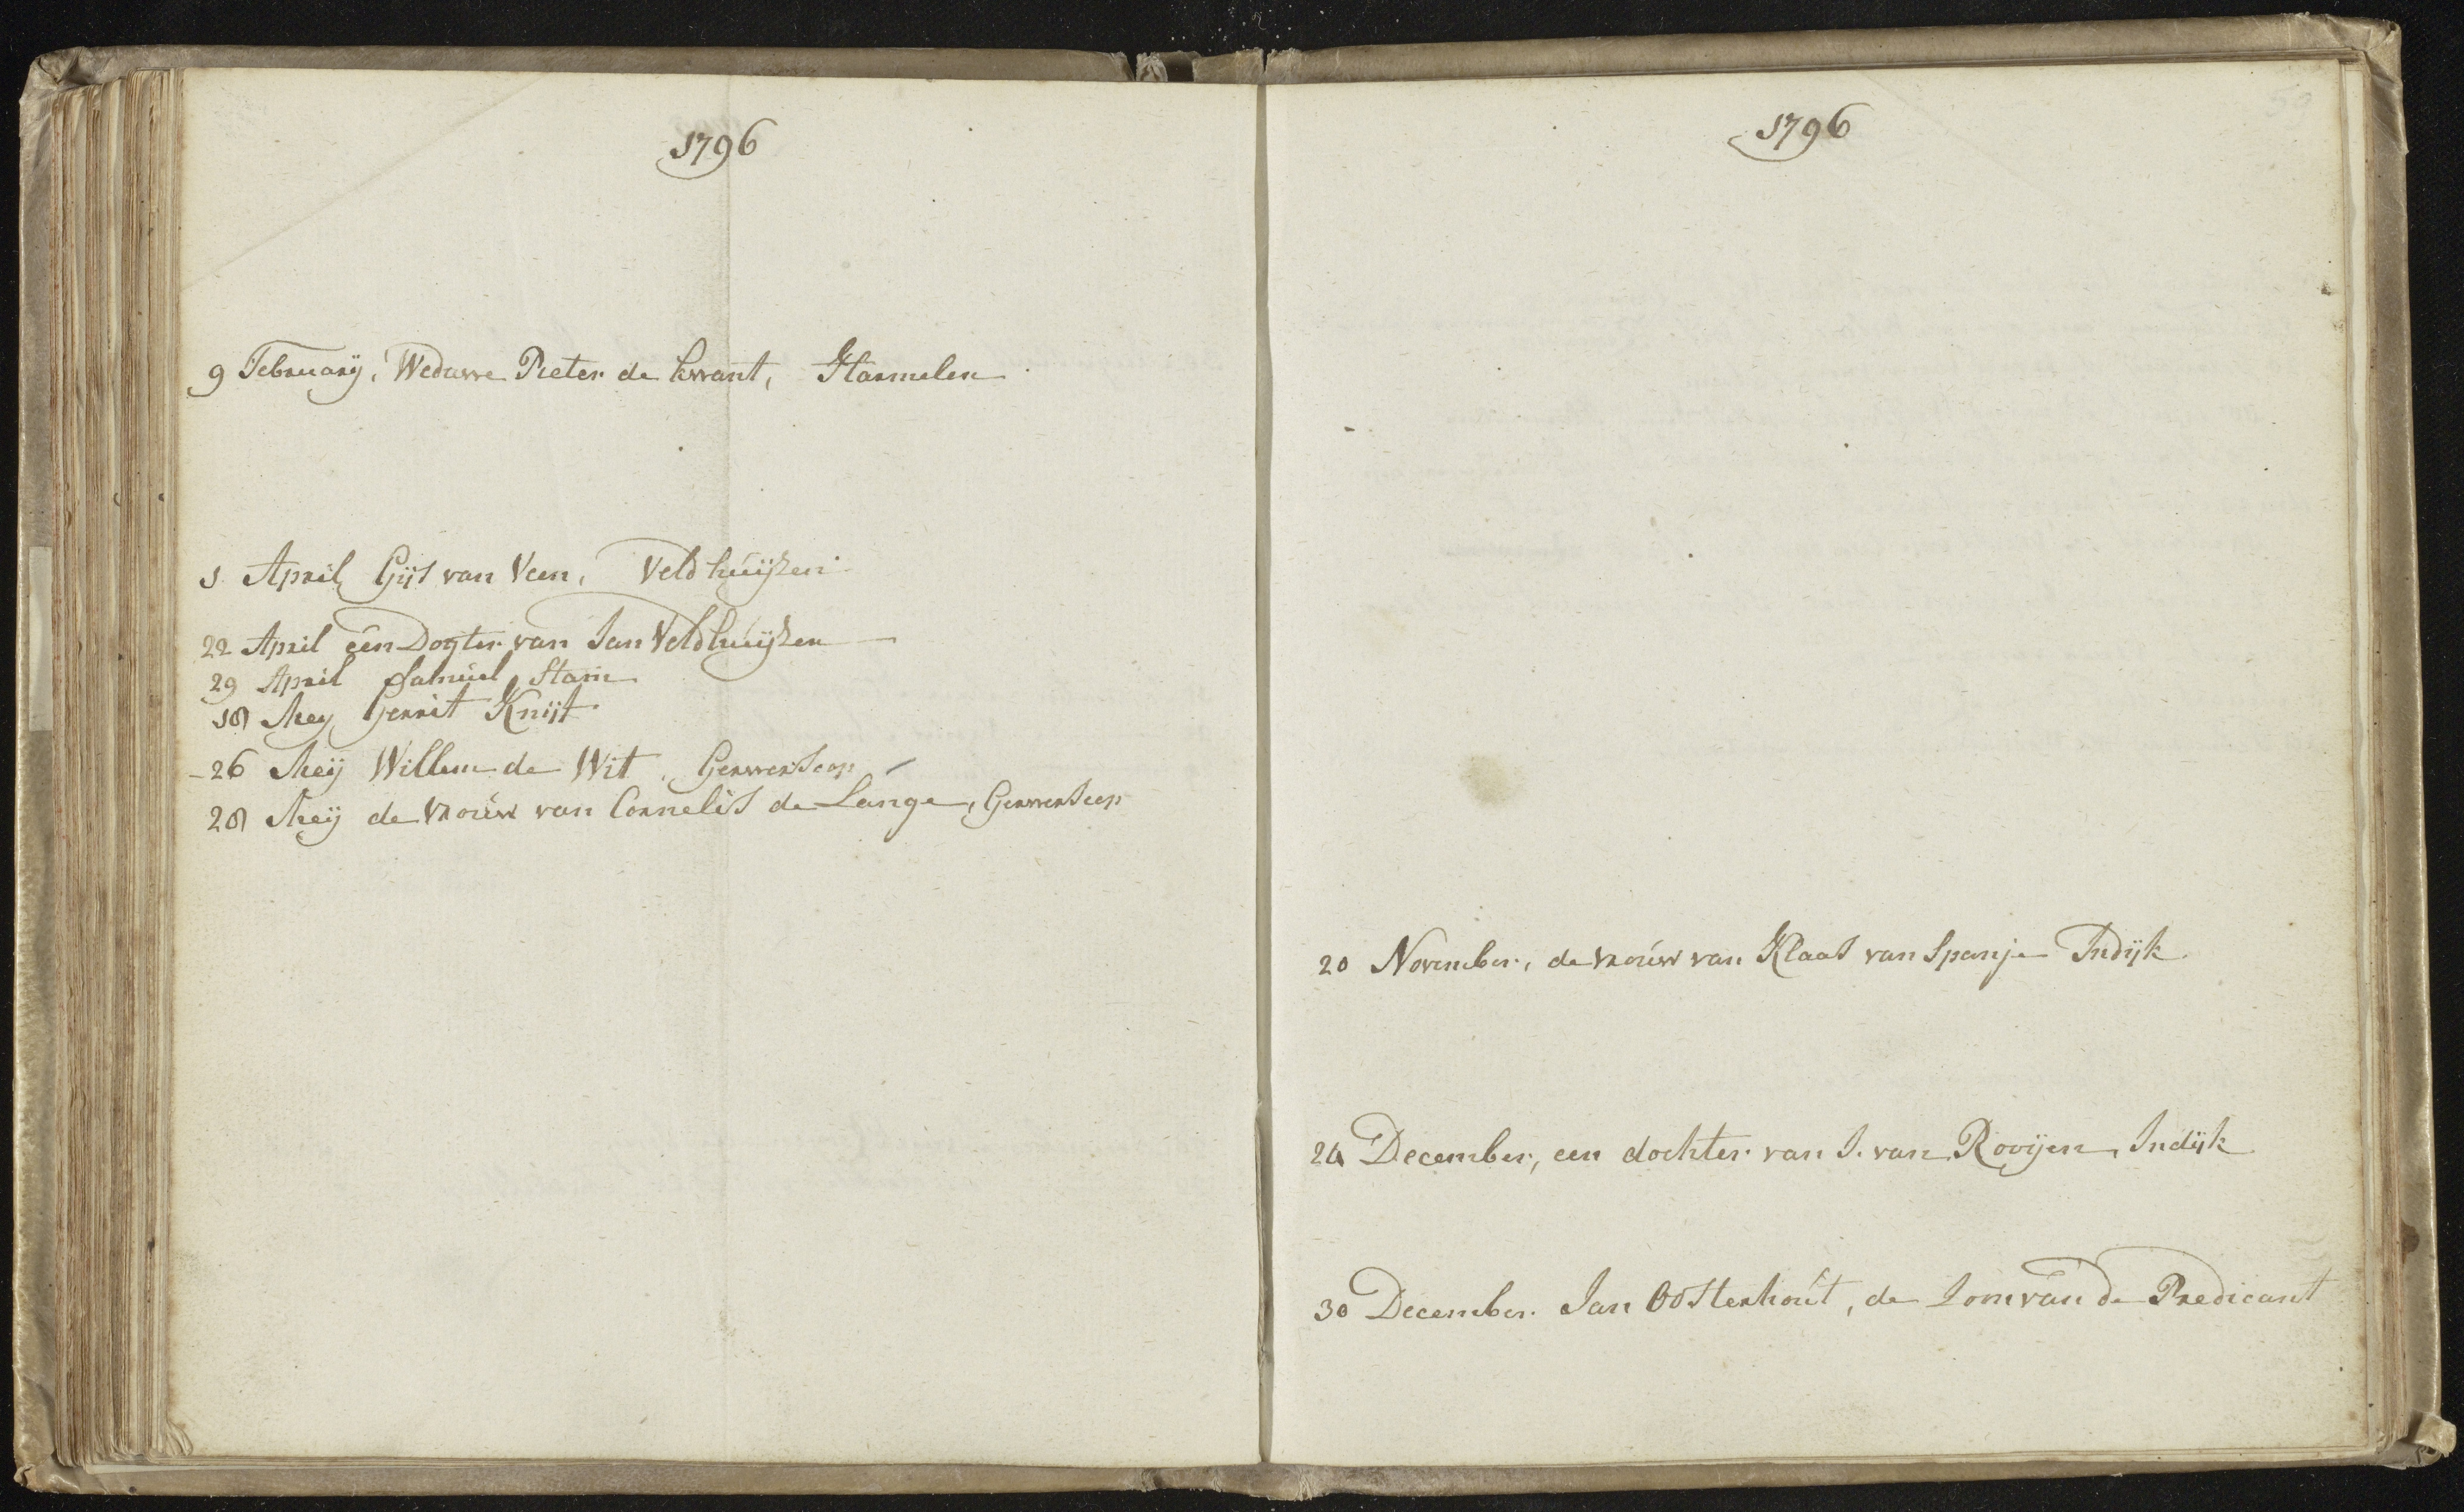 1796
9 February, Weduwe Pieter de kwant, Harmelen
1 April Gijs van Veen, Veldhuijzen
22 April een Dogter van Jan Veldhuijzen
29 April Samuel Stam
18 Mey Gerrit Knijt
26 Meij Willem de Wit, Gerverscop
28 Meij de vrouw van Cornelis de Lange, Gerverscop
1796
20 November, de vrouw van Klaas van Spanje Indijk
24 December, een dochter van J. van Rooijen, Indijk
30 December Jan Oosterhout, de Zoon van de Predicant